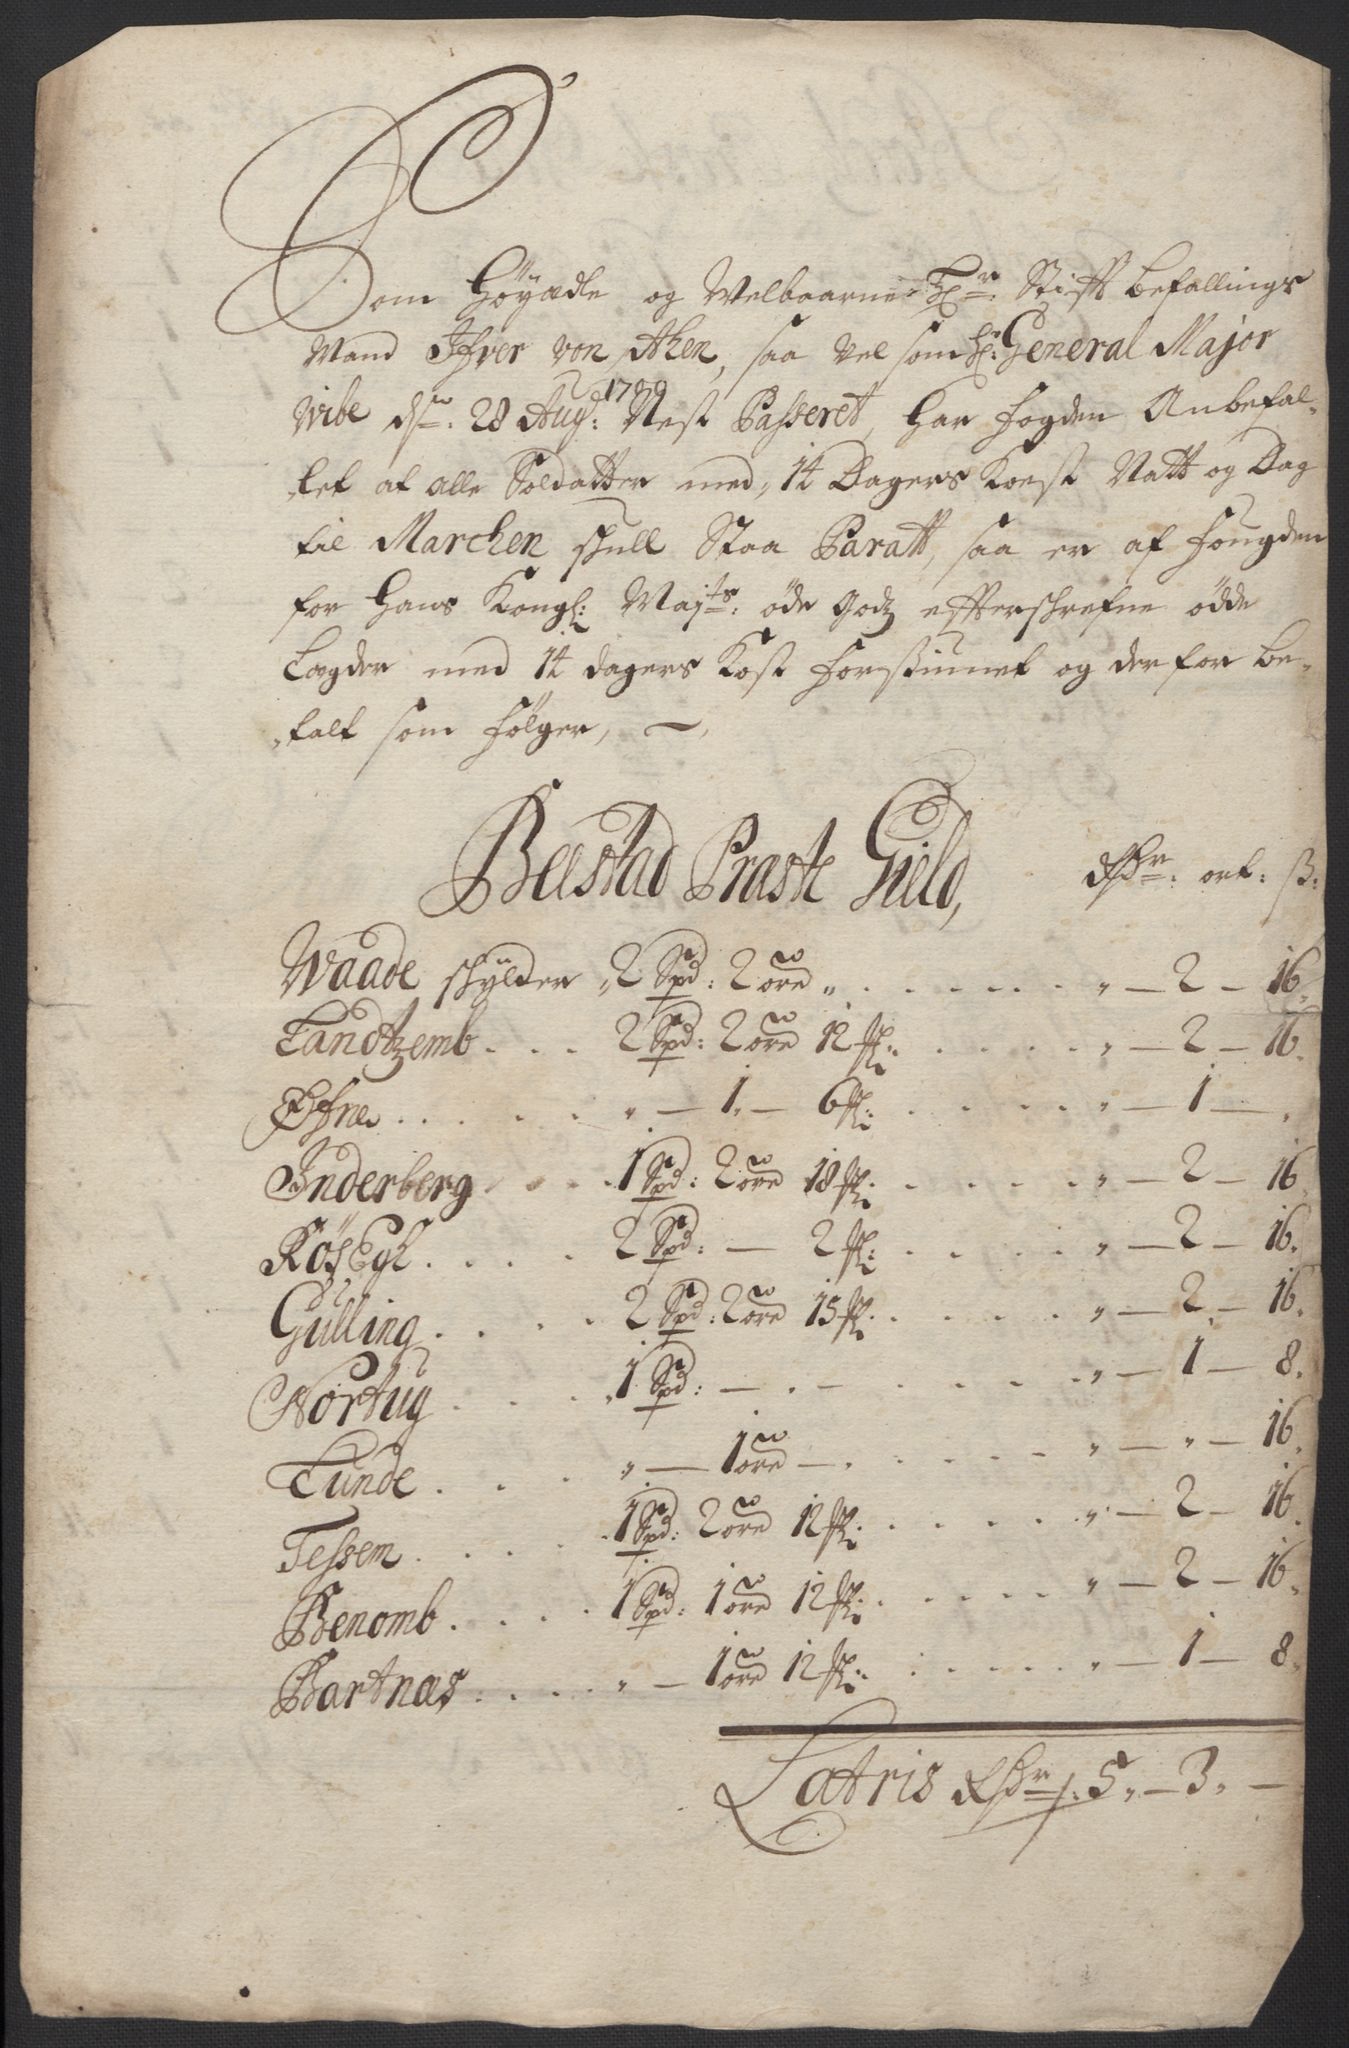 Som Höyædle og Welbaarne Hr: Stifft Befallings
Mand Ifver von Ahen, saa vel som Hr: General Major
Wibe dn: 28 Aug: 1709 Nest Passeret, har fogden Anbefal-
let at alle Soldatter med 14 Dagers Kost Natt og Dag
til Marchen skull Staa Paratt, saa er af Fougden
for Hans Kongl: Majts: öde Godz effterschrefne ödde
Lægder med 14 dagers Kost Forsiunet og derfor be-
talt som Fölger,
Beestad Præste Gield, Rdr: ort: ß:
Waade schylder 2 Spd: 2 öre " — 2 — 16
Landtzemb 2 Spd: 2 öre 12 ml: " — 2 — 16
Æfne " — 1 — 6 ml: " — 1 — "
Inderberg 1 Spd: 2 öre 18 ml: " — 2 — 16
Rösegl 2 Spd: — 2 ml: " — 2 — 16
Gulling 2 Spd: 2 öre 15 ml: " — 2 — 16
Nortug 1 Spd: — " — 1 — 8
Lunde " — 1 öre — " — " — 16
Tessem 1 Spd: 2 öre 12 ml: " — 2 — 16
Benomb 1 Spd: 1 öre 12 ml: " — 2 — 16
Bartnæs " — 1 öre 12 ml: " — 1 — 8
Latris Rdr: 5 — 3 —